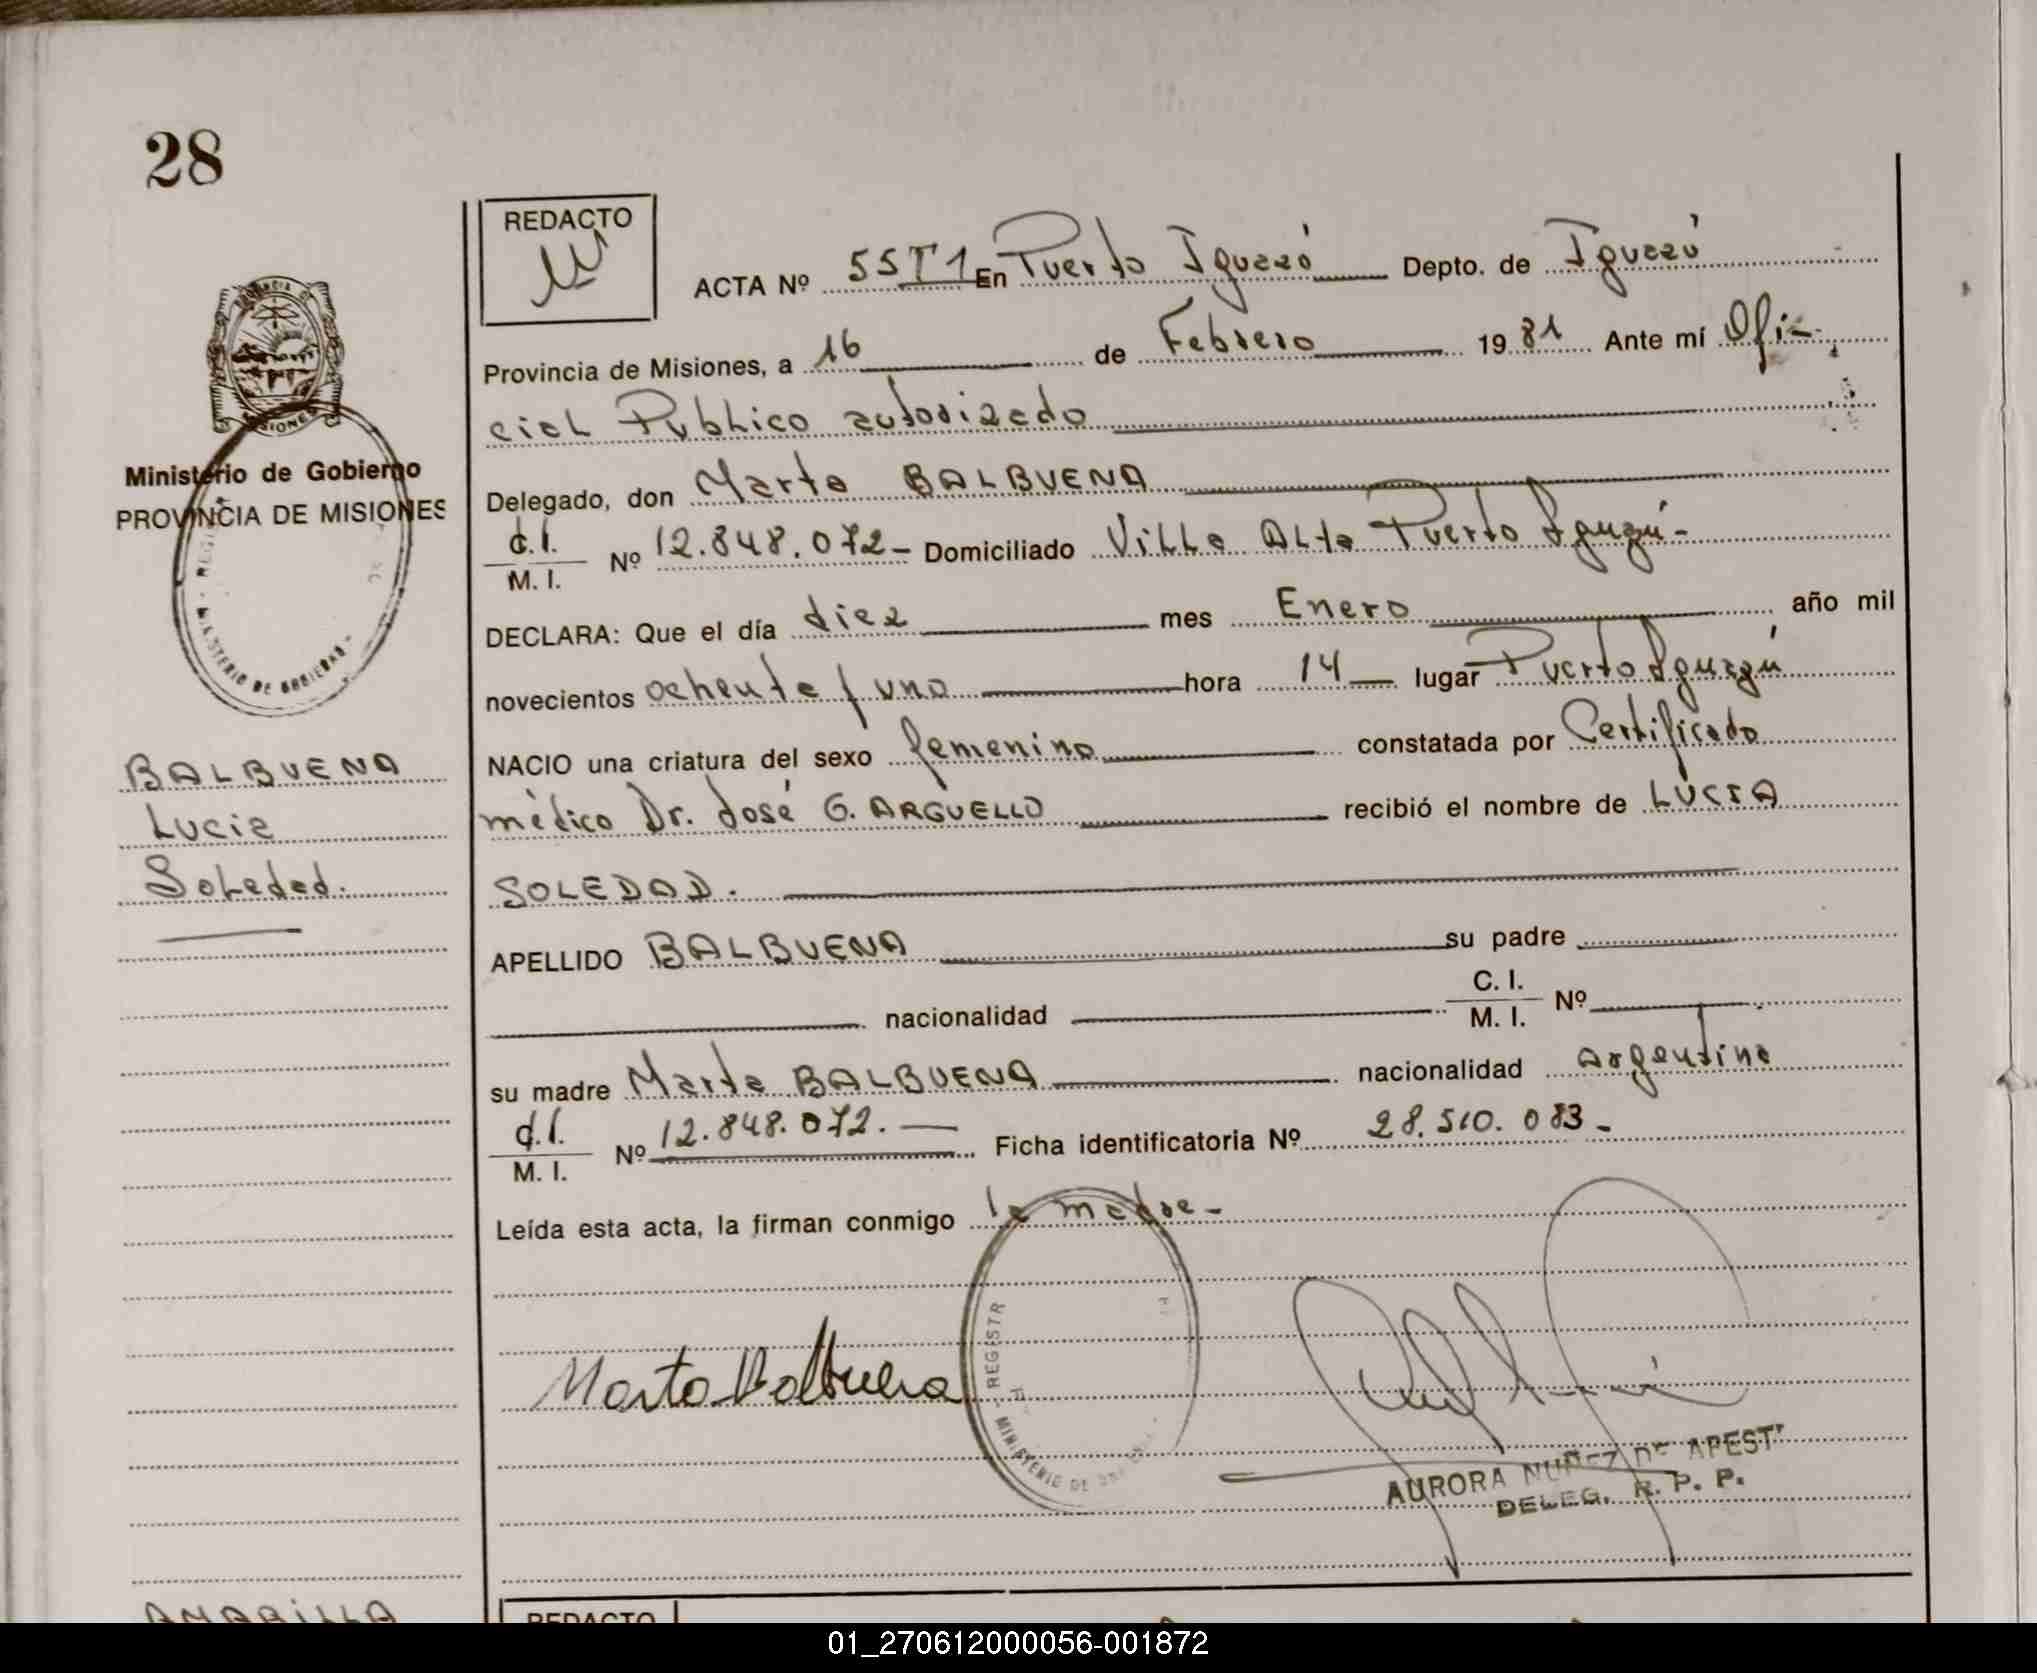 28
REDACTO
ACTA Nº 55T1 En Puerto Iguazú Depto. de Iguazú
Provincia de Misiones, a 16 de Febrero 1981 Ante mí Ofi-
cial Público autorizado
Ministerio de Gobierno
PROVINCIA DE MISIONES
Delegado, don Marta BALBUENA
d.l.
M. I. Nº 12.848.072- Domiciliado Villa Alta Puerto Iguazú-
DECLARA: Que el día diez mes Enero año mil
novecientos ochenta y uno hora 14 lugar Puerto Iguazú
NACIO una criatura del sexo femenino constatada por Certificado
médico Dr. José G. ARGUELLO recibió el nombre de LUCIA
SOLEDAD.
BALBUENA
Lucia
Soledad.
APELLIDO BALBUENA su padre
nacionalidad C. I.
M. I. Nº
su madre Marta BALBUENA nacionalidad argentina
d.l.
M. I. Nº 12.848.072. Ficha identificatoria Nº 28.510.083-
Leída esta acta, la firman conmigo la madre-
Marta Balbuena
REGISTR
MINISTERIO DE
AURORA NUÑEZ DE APEST
DELEG. R. P. P.
REDACTO
01_270612000056-001872